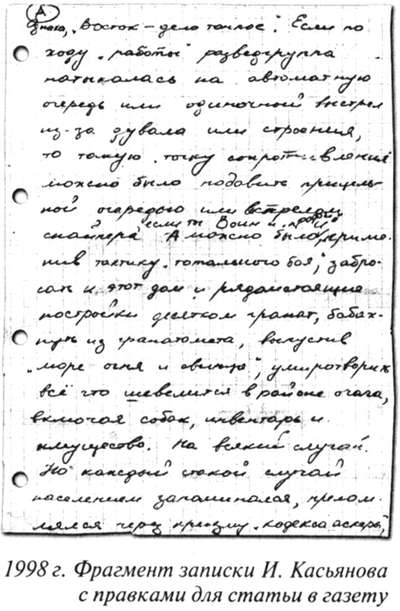 А
Знаю, „Восток – дело тонкое". Если по
ходу „работы" разведгруппа
натыкалась на автоматную
очередь или одиночный выстрел
из-за дувала или строения,
то такую точку сопротивления
можно было подавить прицель-
ной очередью или выстрелом
снайпера если ты Воин и „профи"
А можно было приме-
нив тактику „тотального боя", забро-
сать и этот дом и рядомстоящие
постройки десятком гранат, бабах-
нуть из гранатомета, выпустив
„море огня и свинца", умиротворить
всё что шевелится в районе очага,
включая собак, инвентарь и
имущество. На всякий случай.
Но каждый такой случай
населением запоминался, прелом-
лялся через призму „кодекса аскера",
1998 г. Фрагмент записки И. Касьянова
с правками для статьи в газету